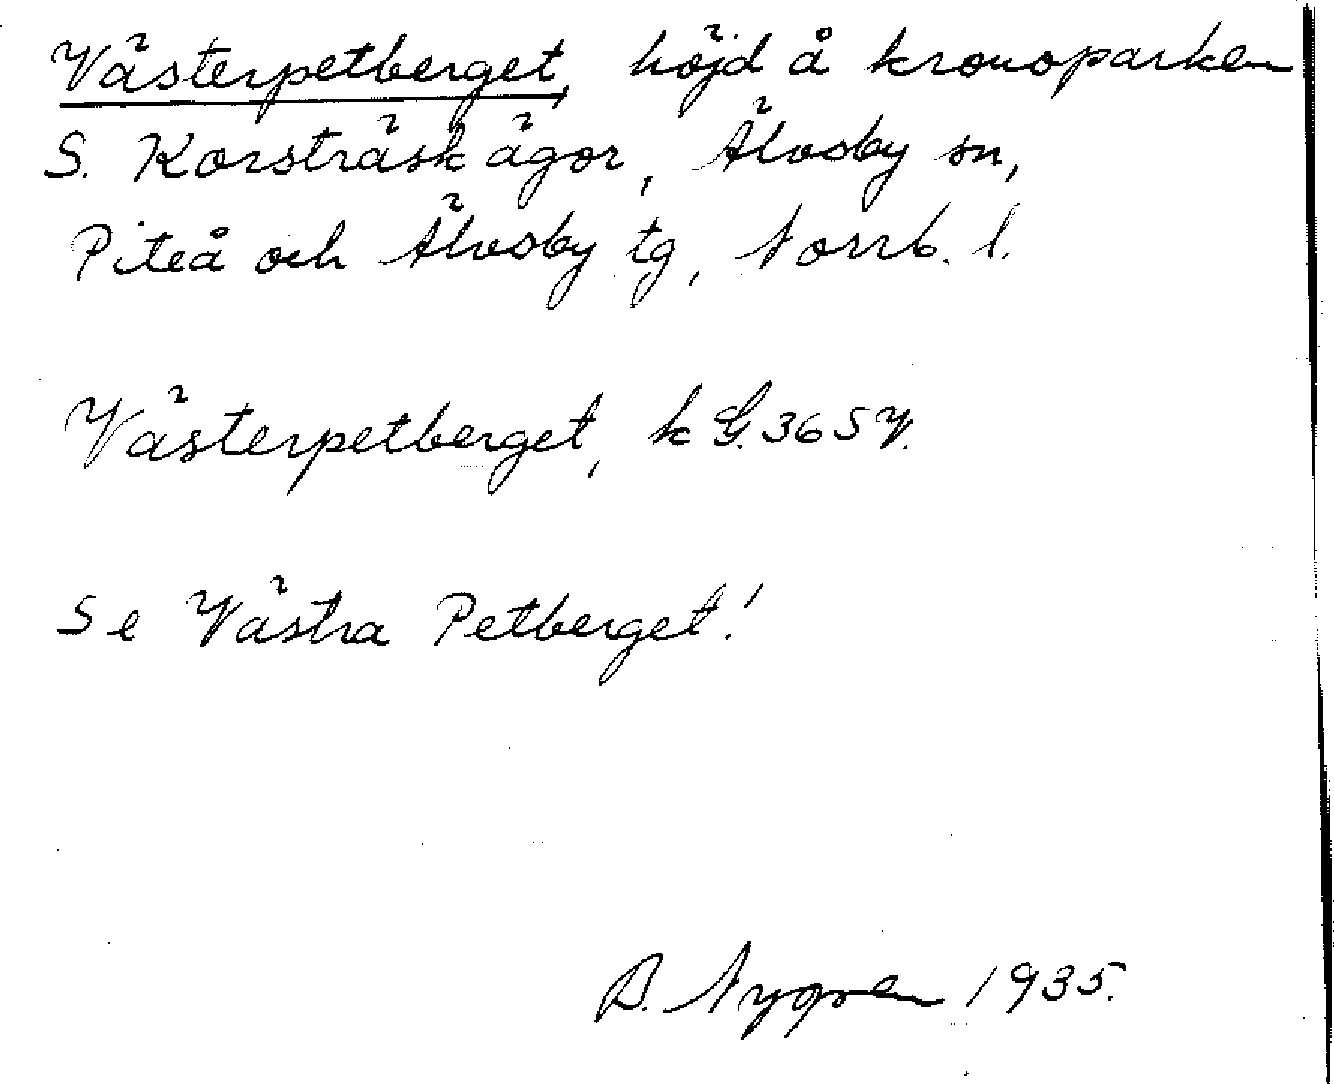 Västerpetberget, höjd å kronoparken
S. Korsträsk ägor, Älvsby sn,
Piteå och Älvsby tg, Norrb. l.
Västerpetberget, k G. 36 S V.
Se Västra Petberget!
B. Nygren 1935.